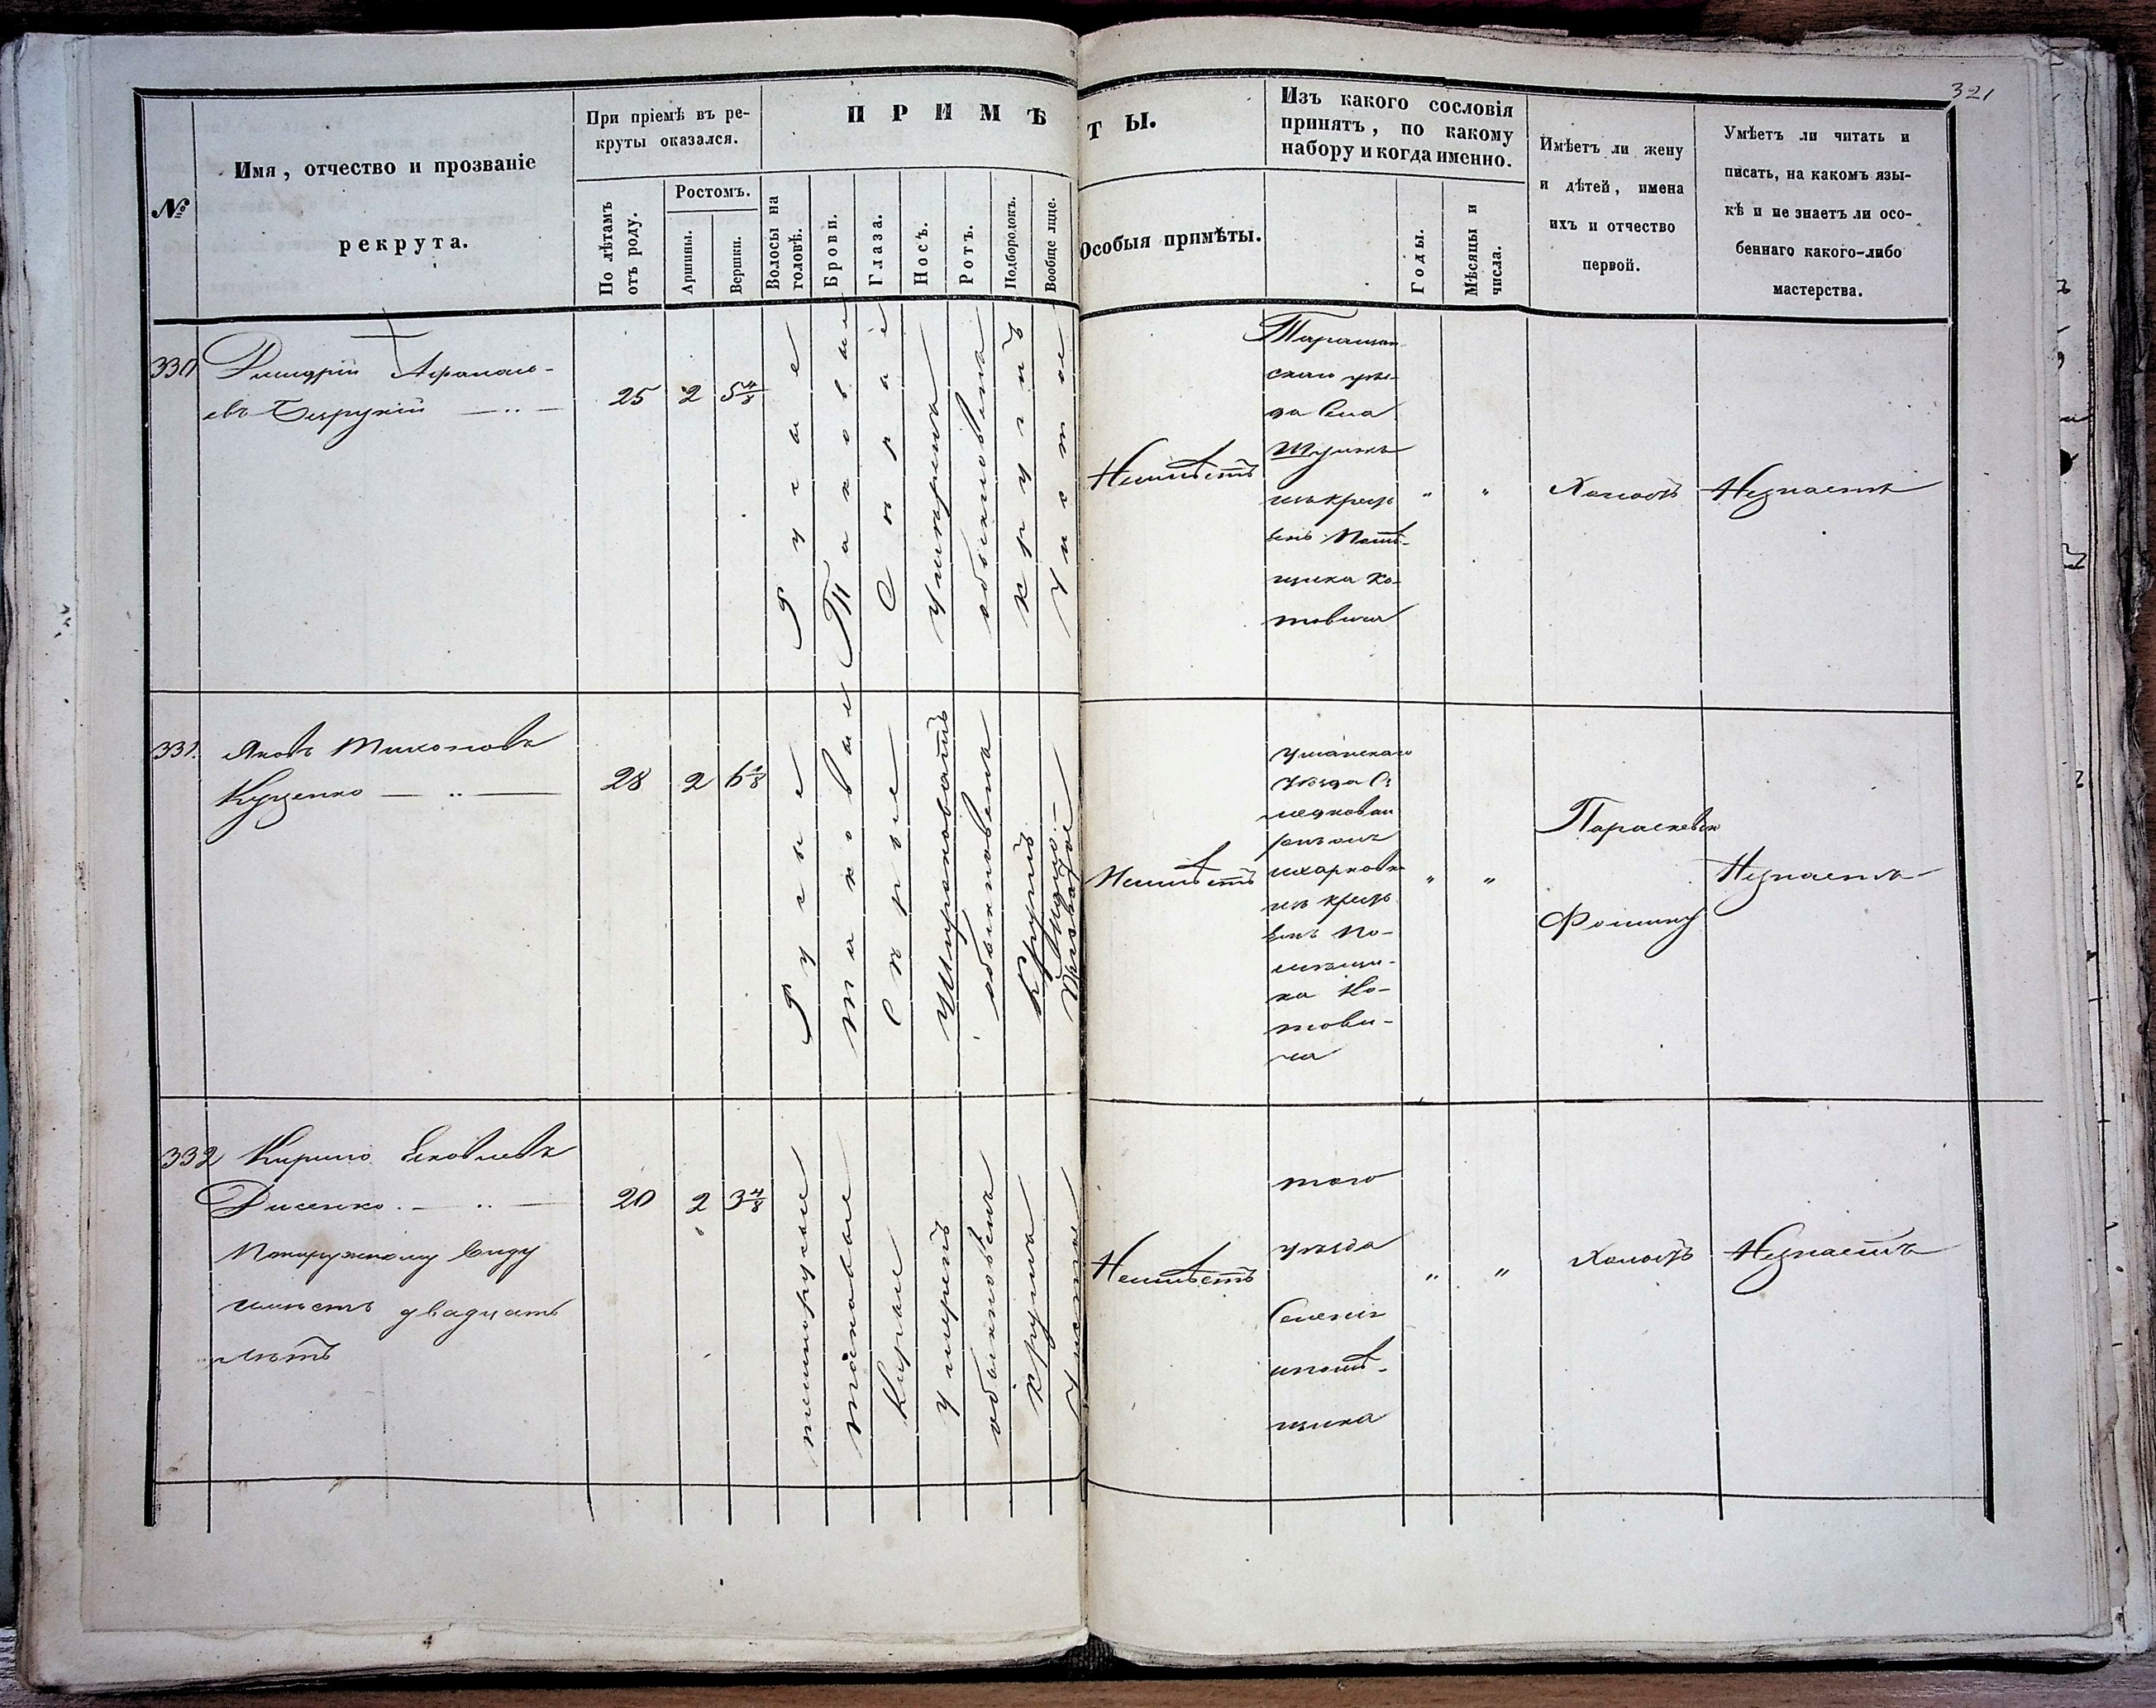 321
№
Имя, отчество и прозваніе
рекрута.
При пріемѣ въ ре-
круты оказался.
По лѣтамъ
отъ роду.
Ростомъ.
Аршины.
Вершки.
ПРИМѢ
ТЫ.
Волосы на
головѣ.
Брови.
Глаза.
Носъ.
Ротъ.
Подбородокъ.
Вообще лице.
Особыя примѣты.
Изъ какого сословія
принятъ, по какому
набору и когда именно.
Годы.
Мѣсяцы и
числа.
Имѣетъ ли жену
и дѣтей, имена
ихъ и отчество
первой.
Умѣетъ ли читать и
писать, на какомъ язы-
кѣ и не знаетъ ли осо-
беннаго какого-либо
мастерства.
330
Дмидрій Афанась-
евъ
25
2
5 4/8
Русые
Таковые
Сѣрые
Умѣренъ
обыкновенъ
круглъ
Чистое
Неимѣетъ
Таращан
скаго уѣз-
да Села
изъ кресть
янъ Помѣ-
щика Ко-
товича
"
"
Холостъ
Незнаетъ
331.
Яковъ Тихоновъ
Куценко
28
2
6 1/8
Русые
таковые
Сѣрые
Широковатъ
обыкновенъ
круглъ
Неимѣетъ
Уманскаго
Уѣзда
изъ кресть
янъ По-
мѣщи-
ка Ко-
тови-
ча
"
"
Параскевія
Фомину
Незнаетъ
332
Кирило Яковлевъ
Дисенко.
Понаружному виду
имѣетъ двадцать
лѣтъ
20
2
3 4/8
темнорусые
таковые
Карые
умѣренъ
обыкновенъ
круглъ
Чистое
Неимѣетъ
того
уѣзда
Селенія
ипомѣ-
щика
"
"
Холостъ
Незнаетъ